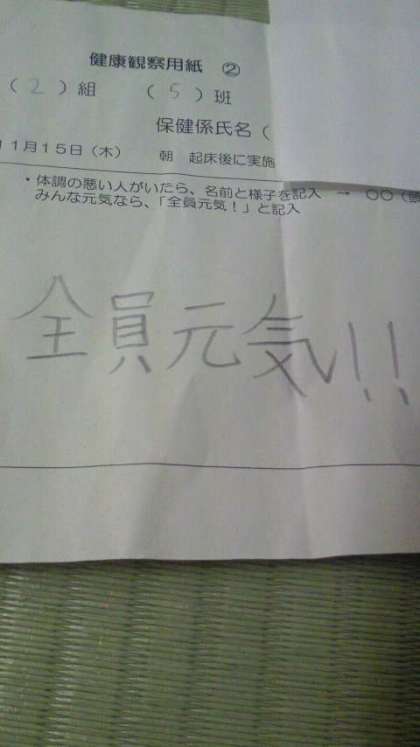 健康観察用紙 ②
(2)組 (5)班
保健係氏名(
11月15日(木) 朝 起床後に実施
・体調の悪い人がいたら、名前と様子を記入 → 〇〇(
みんな元気なら、「全員元気!」と記入
全員元気!!